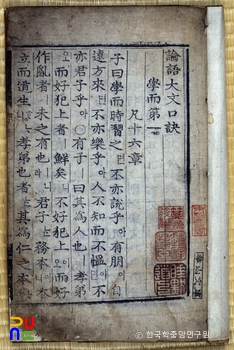 論語大文口訣
學而第一
凡十六章
子曰學而時習之면不亦說乎아有朋이自
遠方來면不亦樂乎아人不知而不慍이면不
亦君子乎아○有子ㅣ曰其爲人也ㅣ孝弟
오而好犯上者ㅣ鮮矣니不好犯上이오而好
作亂者ㅣ未之有也ㅣ니라君子는務本이니本
立而道生孝弟也者는其爲仁之本
© 한국학중앙연구원